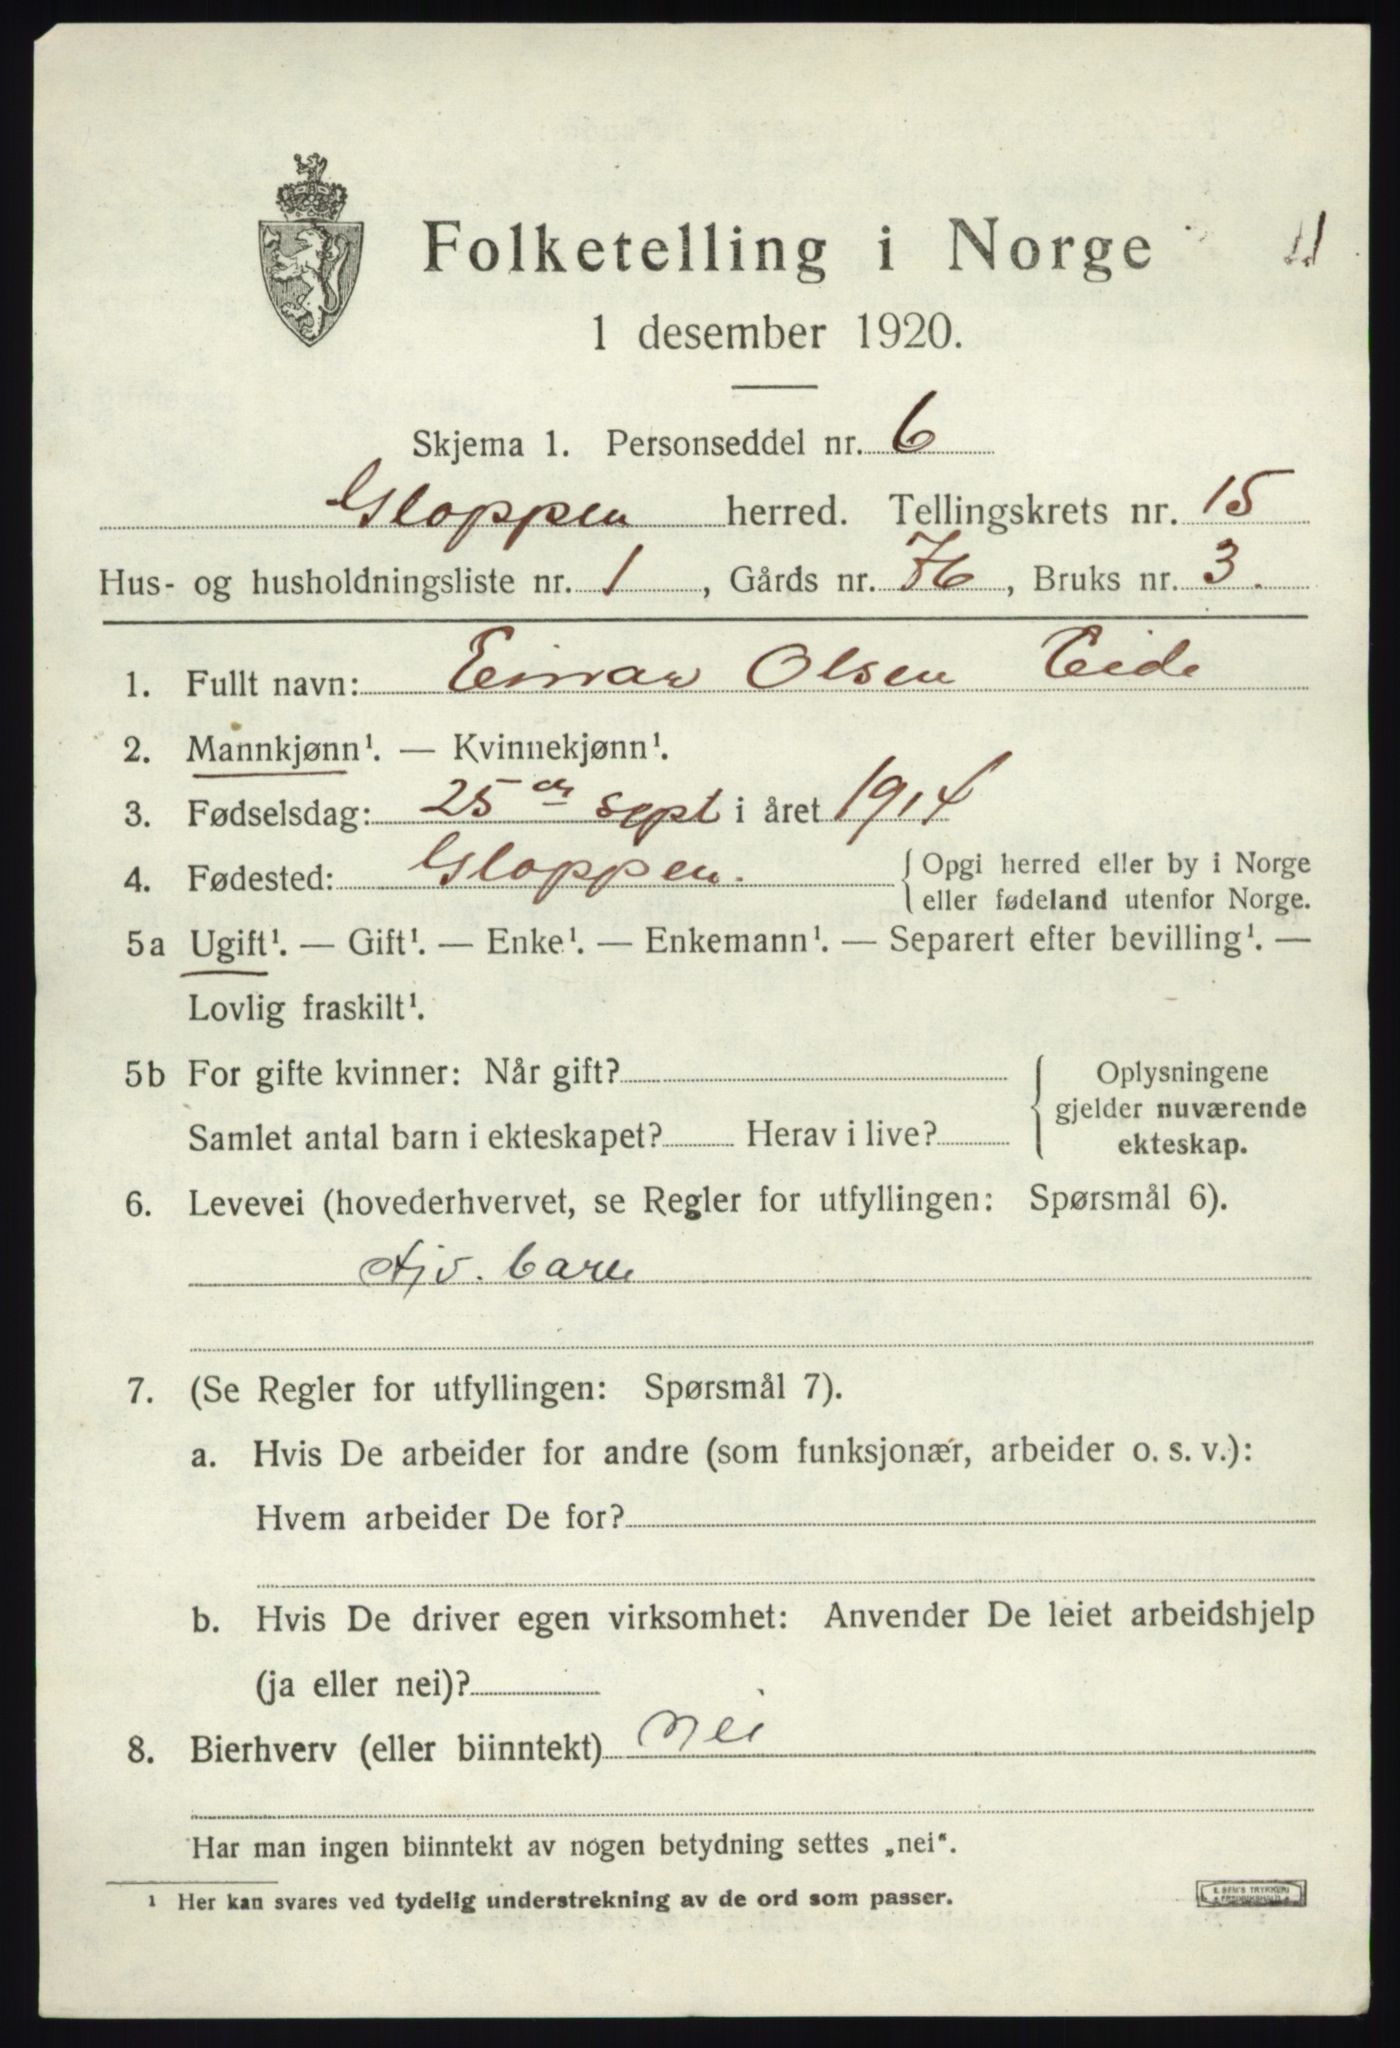 Folketelling i Norge
11
1 desember 1920.
Skjema 1. Personseddel nr. 6
Gloppen herred. Tellingskrets nr. 15
Hus- og husholdningsliste nr. 1, Gårds nr. 76, Bruks nr. 3.
1. Fullt navn: Einar Olsen Eide
2. Mannkjønn¹. — Kvinnekjønn¹.
3. Fødselsdag: 25 de sept i året 1914
4. Fødested: Gloppen. { Opgi herred eller by i Norge
eller fødeland utenfor Norge.
5a Ugift¹. — Gift¹. — Enke¹. — Enkemann¹. — Separert efter bevilling¹. —
Lovlig fraskilt¹.
5b For gifte kvinner: Når gift?
Samlet antal barn i ekteskapet? Herav i live?
{ Oplysningene
gjelder nuværende
ekteskap.
6. Levevei (hovederhvervet, se Regler for utfyllingen: Spørsmål 6).
7. (Se Regler for utfyllingen: Spørsmål 7).
a. Hvis De arbeider for andre (som funksjonær, arbeider o. s. v.):
Hvem arbeider De for?
b. Hvis De driver egen virksomhet: Anvender De leiet arbeidshjelp
(ja eller nei)?
8. Bierhverv (eller biinntekt) Nei
Har man ingen biinntekt av nogen betydning settes „nei“.
¹ Her kan svares ved tydelig understrekning av de ord som passer.
E. SEM'S TRYKKERI
FREDRIKSHALD